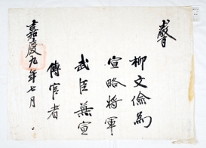 敎旨
柳文儉爲
宣略將軍
武臣兼宣
傳官者
嘉慶九年七月